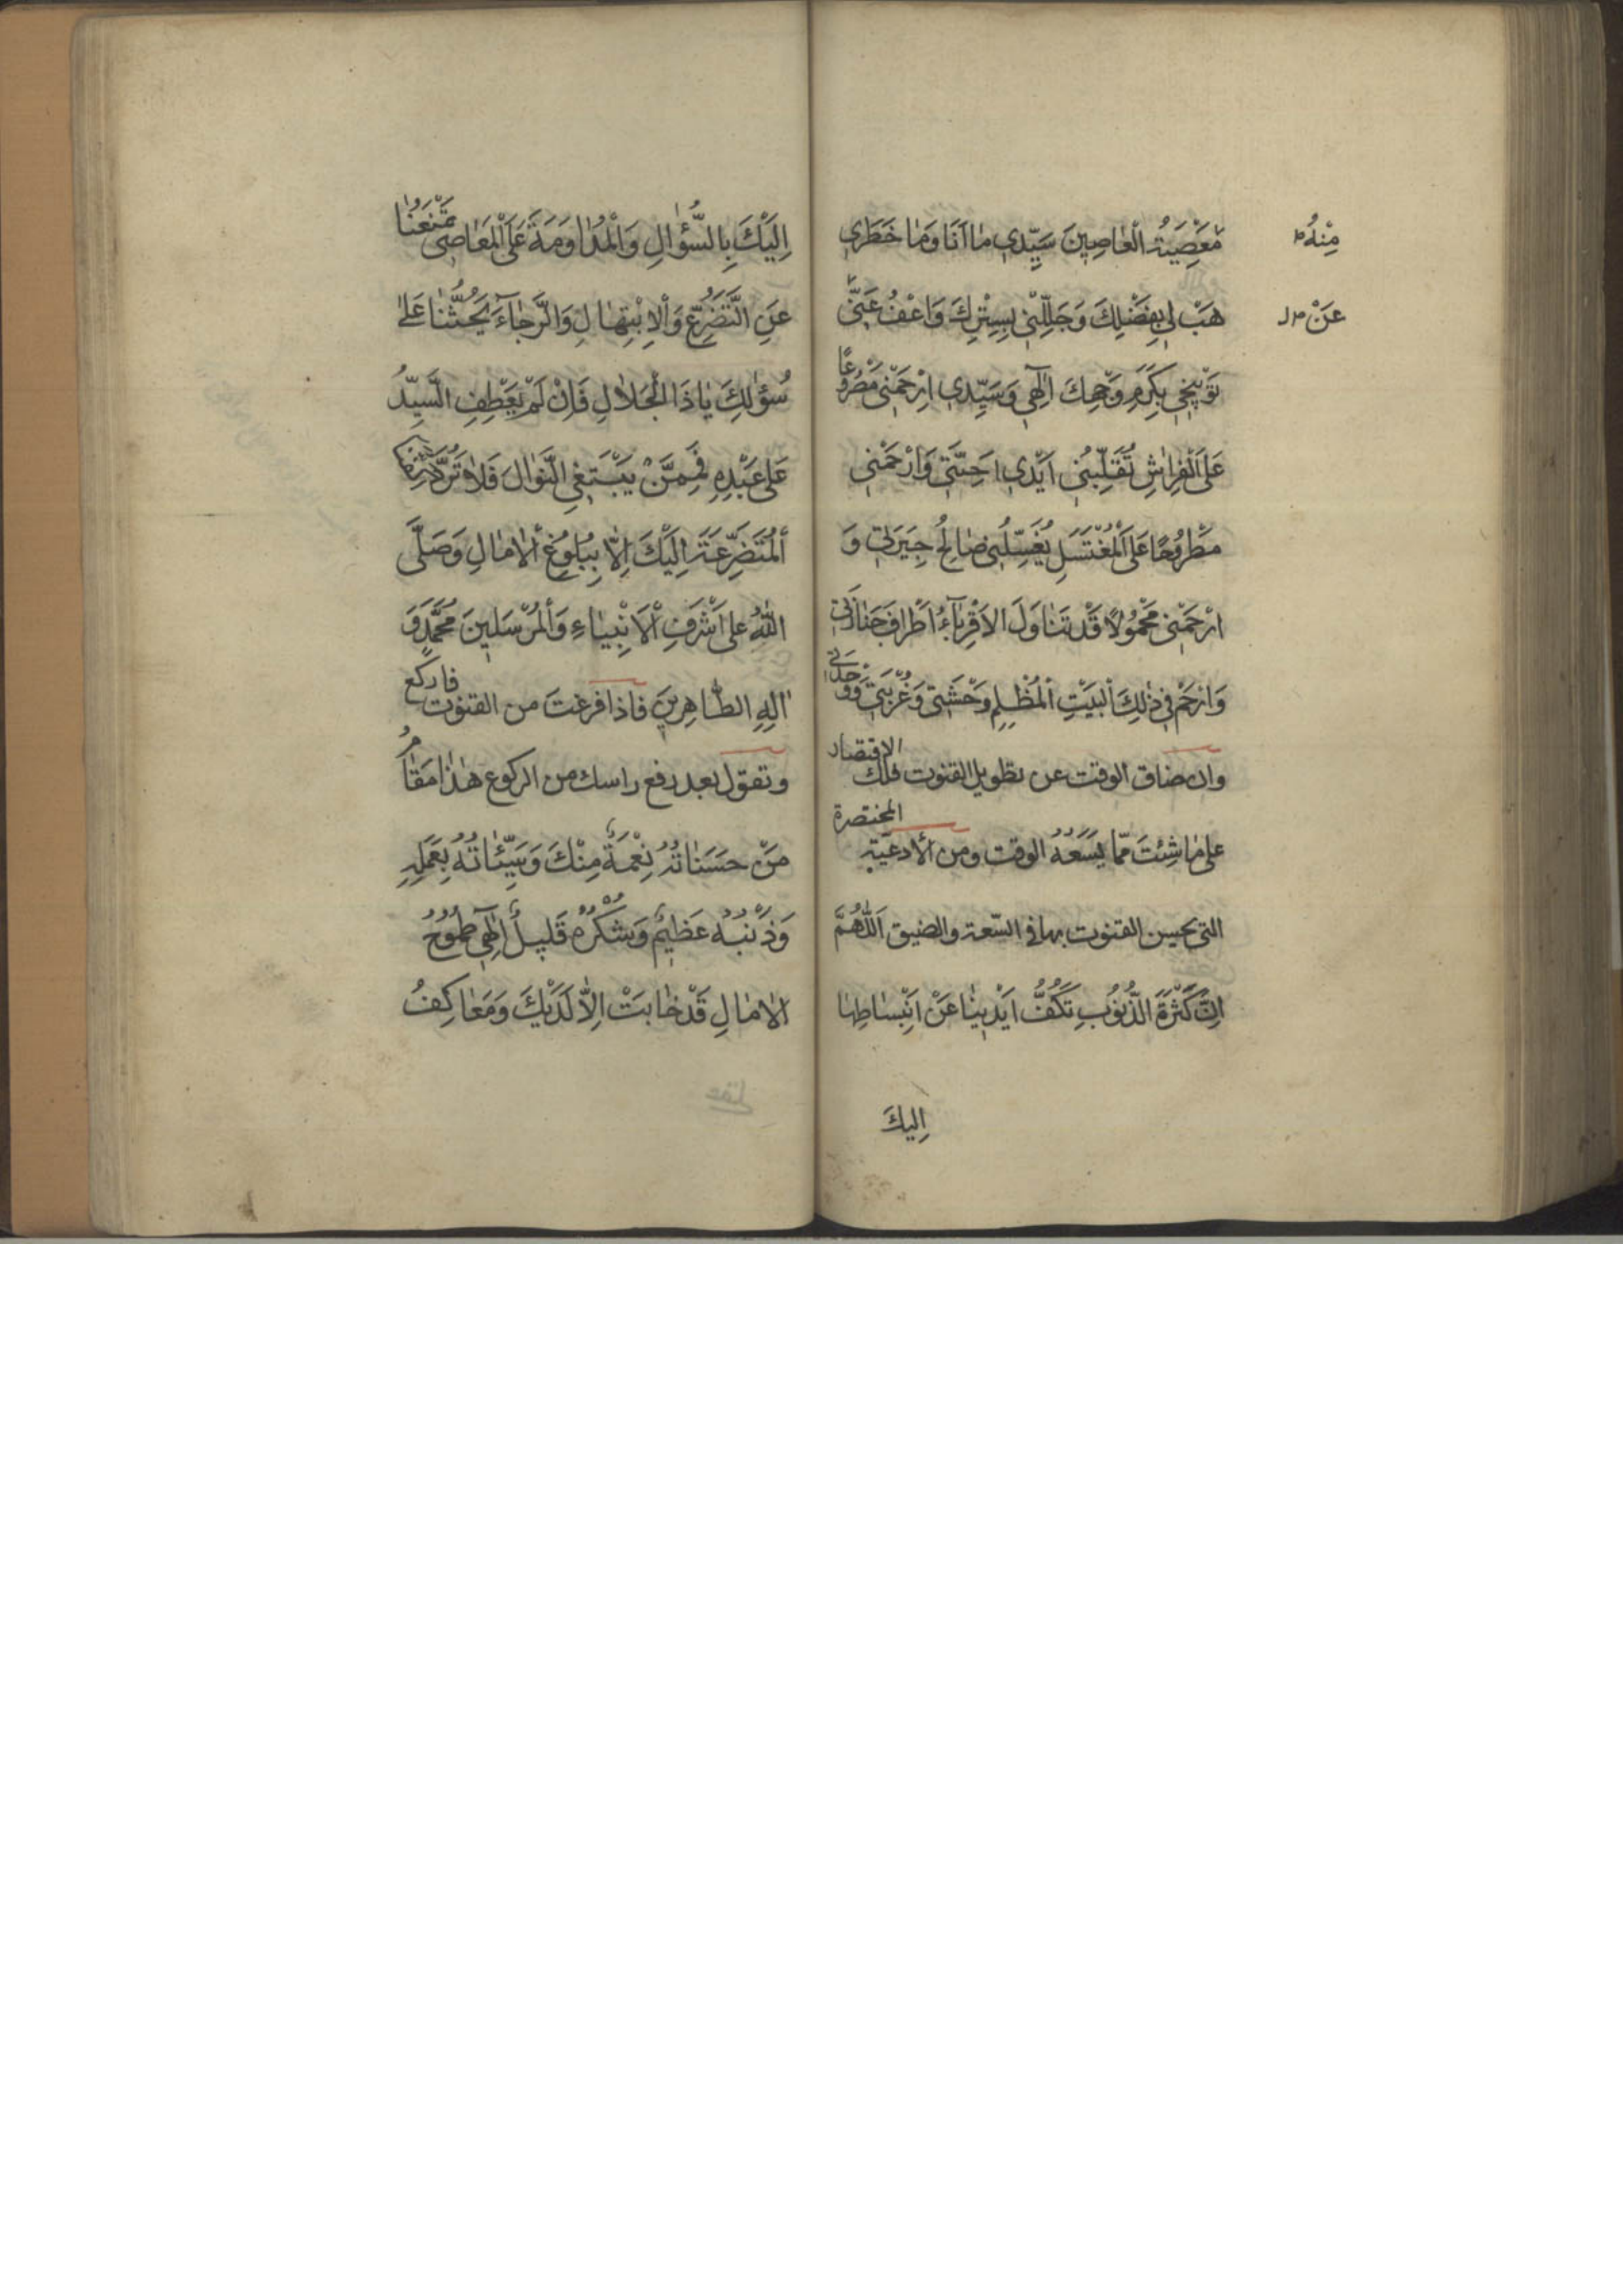 مَعْصِيَةُ الْعٰاصِينَ سَيِّدِي مٰا اَنَا وَمٰا خَطَرِي
مِنْهُ
هَبْ لِي بِفَضْلِكَ وَجَلِّلْنِي بِسِتْرِكَ وَاعْفُ عَنِّي
عَنْ
تَوْبِيخِي بِكَرَمِ وَجْهِكَ اِلٰهِي وَسَيِّدِي اِرْحَمْنِي مَصْرُوعًا
عَلَى الْفِرٰاشِ تُقَلِّبُنِي اَيْدِي اَحِبَّتِي وَارْحَمْنِي
مَطْرُوحًا عَلَى الْمُغْتَسَلِ يُغَسِّلُنِي صٰالِحُ جِيرَتِي وَ
ارْحَمْنِي مَحْمُولًا قَدْ تَنٰاوَلَ الْاَقْرِبٰآءُ اَطْرٰافَ جَنٰازَتِي
وَارْحَمْ فِي ذٰلِكَ الْبَيْتِ الْمُظْلِمِ وَحْشَتِي وَغُرْبَتِي وَوَحْدَتِي
وان ضاق الوقت عن تطويل القنوت فلك الاقتصار
على مٰا شِئتَ ممّا يَسَعُهُ الوقت ومن الأدعية المختصرة
التي يحسن القنوت بها في السّعة والضيق اَللّٰهُمَّ
اِنَّ كَثْرَةَ الذُّنُوبِ تَكُفُّ اَيْدِيَنٰا عَنْ اِنْبِسٰاطِهٰا
اِلَيكَ
اِلَيْكَ بِالسُّؤٰالِ وَالْمُدٰاوَمَةَ عَلَى الْمَعٰاصِي تَمْنَعُنٰا
عَنِ التَّضَرُّعِ وَالْاِبْتِهٰالِ وَالرَّجٰآءَ يَحُثُّنٰا عَلىٰ
سُؤٰلِكَ يٰا ذَا الْجَلٰالِ فَاِنْ لَمْ يَعْطِفِ السَّيِّدُ
عَلىٰ عَبْدِهِ فَمِمَّنْ يَبْتَغِي النَّوٰالَ فَلٰا تَرُدَّ اَكُفَّنٰا
الْمُتَضَرِّعَةَ اِلَيْكَ اِلّٰا بِبُلُوغِ الْاٰمٰالِ وَصَلَّى
اللّٰهُ عَلىٰ اَشْرَفِ الْاَنْبِيٰاءِ وَالْمُرْسَلِينَ مُحَمَّدٍ وَ
اٰلِهِ الطّٰاهِرِينَ فاذا فرغتَ من القنوت فاركع
وتقول بعد رفع راسك من الركوع هٰذٰا مَقٰامُ
مَنْ حَسَنٰاتُهُ نِعْمَةٌ مِنْكَ وَسَيِّئٰاتُهُ بِعَمَلِهِ
وَذَنْبُهُ عَظِيمٌ وَشُكْرُهُ قَلِيلٌ اِلٰهِي طُمُوحُ
الْاٰمٰالِ قَدْ خٰابَتْ اِلّٰا لَدَيْكَ وَمَعٰاكِفُ